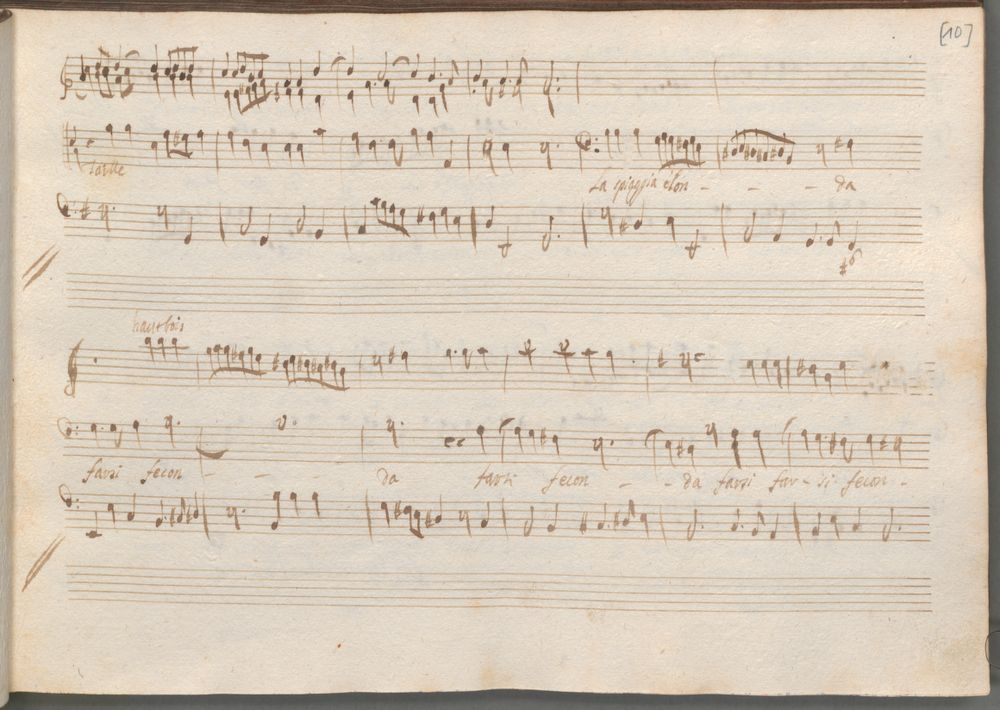 [10]
sorde
La spiaggia e l'on - - - da
#6
hautbois
farsi fecon - - - da farsi fecon - - da farsi far - si fecon -